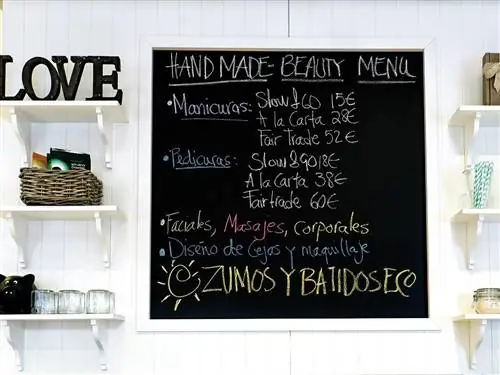 LOVE
HAND MADE - BEAUTY MENU
• Manicuras: Slow & GO 15€
A la Carta 28€
Fair Trade 52€
• Pedicuras: Slow & go 18€
A la Carta 38€
Fair trade 60€
• Faciales, Masajes, corporales
• Diseño de Cejas y maquillaje
ZUMOS Y BATIDOS ECO